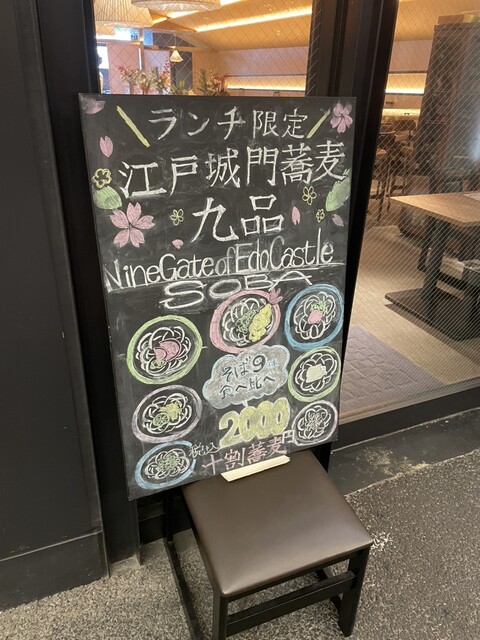 ランチ限定
江戸城門蕎麦
九品
NineGateofEdoCastle
SOBA
そば9
食べ比べ
税込 2000円
十割蕎麦